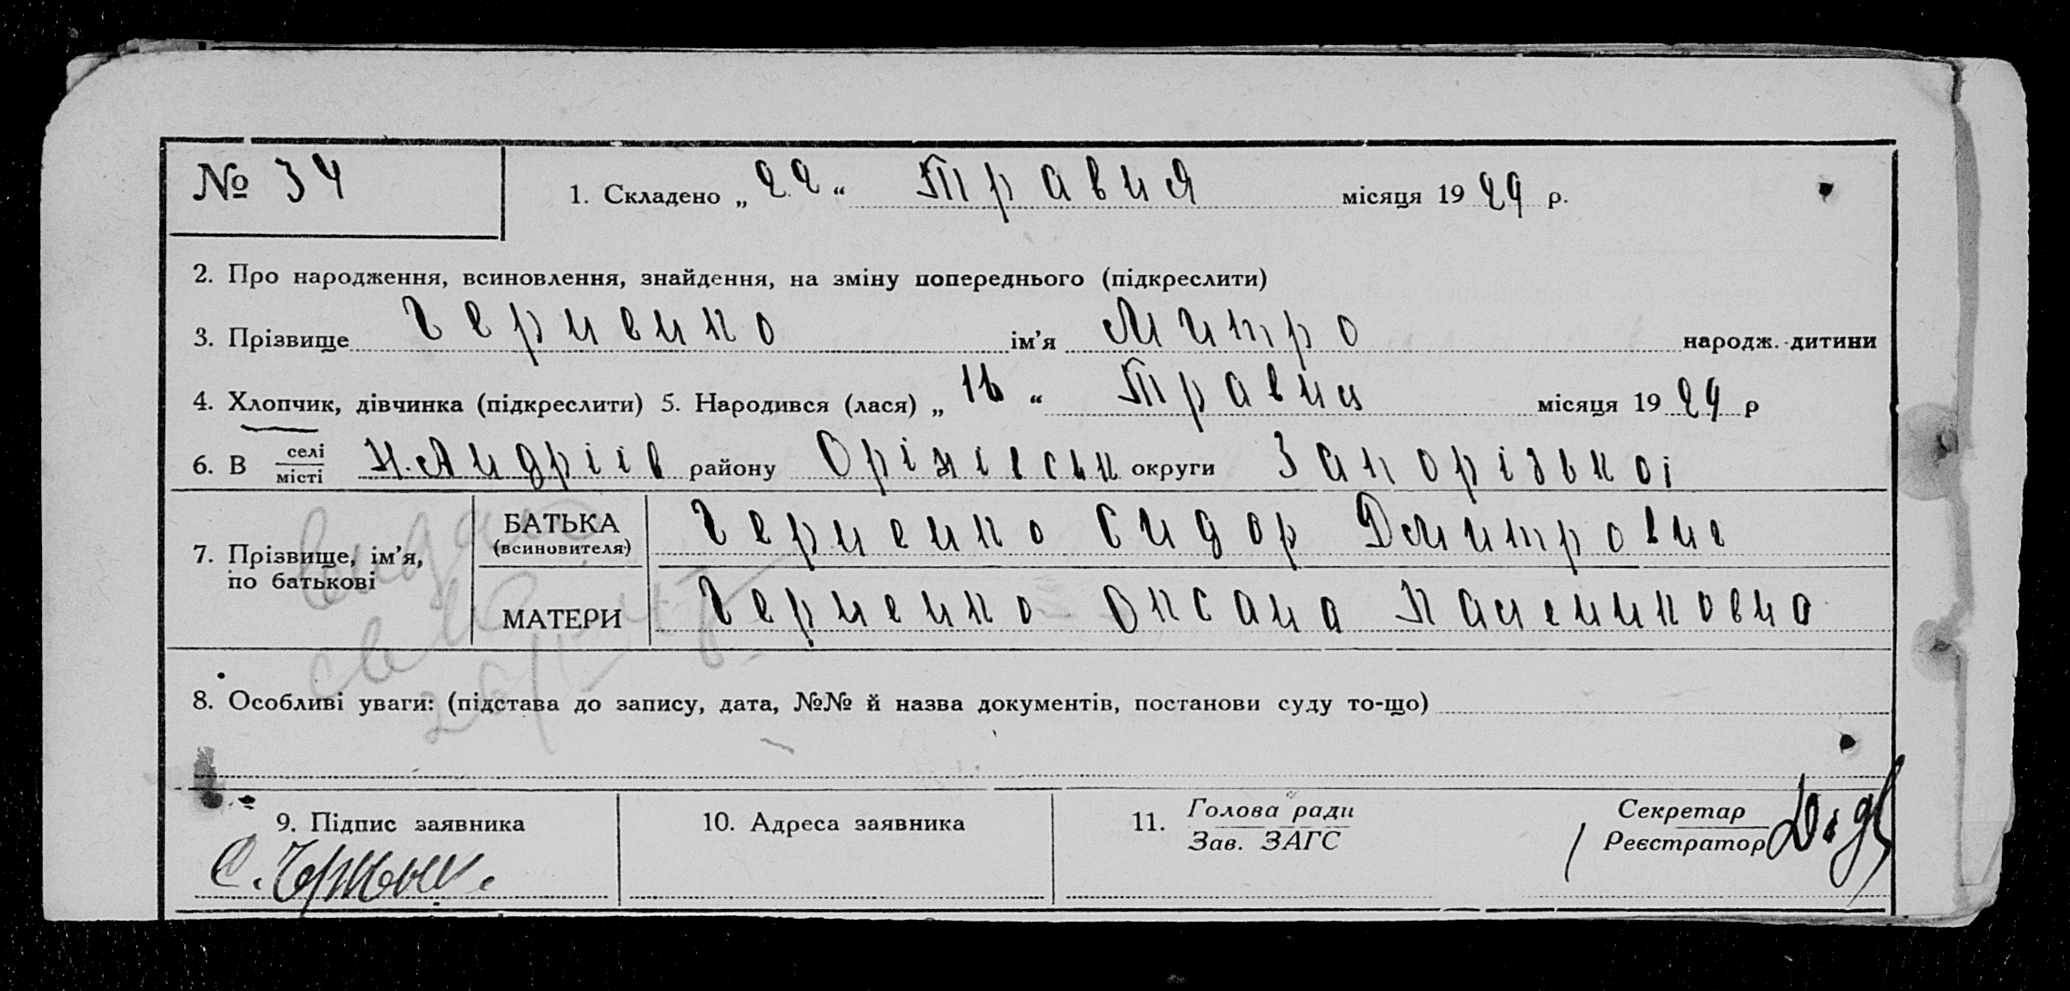 № 34
1. Складено „ 22 “ Травня місяця 1929 р.
2. Про народження, всиновлення, знайдення, на зміну попереднього (підкреслити)
3. Прізвище Черненко ім'я Митро народж. дитини
4. Хлопчик, дівчинка (підкреслити) 5. Народився (лася) „ 16 “ Травня місяця 1929 р
6. В селі Н.Андріів району Оріхівськ округи Запорізькоі
місті
7. Прізвище, ім'я, по батькові
БАТЬКА Черненко Сидор Дмитрович
(всиновителя)
МАТЕРИ Черненко Оксана
8. Особливі уваги: (підстава до запису, дата, №№ й назва документів, постанови суду то-що)
9. Підпис заявника
10. Адреса заявника
11. Голова ради
Зав. ЗАГС
Секретар
Реєстратор
С.